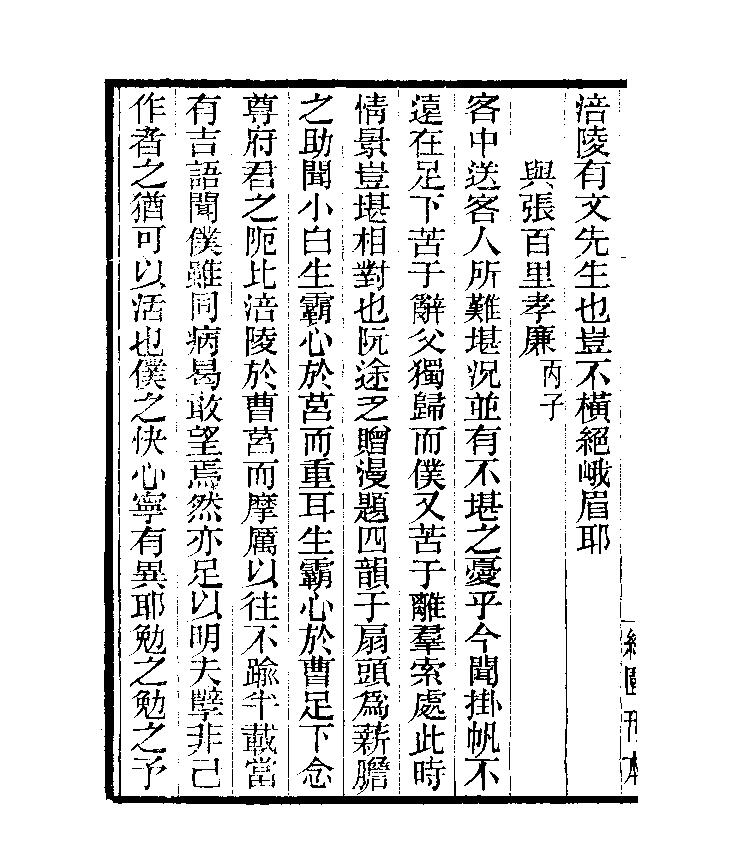 涪陵有文先生也豈不橫絕峨眉耶
與張百里孝廉丙子
客中送客人所難堪況並有不堪之憂乎今聞掛帆不
遠在足下苦于辭父獨歸而僕又苦于離羣索處此時
情景豈堪相對也阮途之贈漫題四韻于扇頭爲薪膽
之助聞小白生霸心於莒而重耳生霸心於曹足下念
尊府君之阨比涪陵於曹莒而摩厲以往不踰半載當
有吉語聞僕雖同病曷敢望焉然亦足以明夫孽非己
作者之猶可以活也僕之快心寧有異耶勉之勉之予
刊本